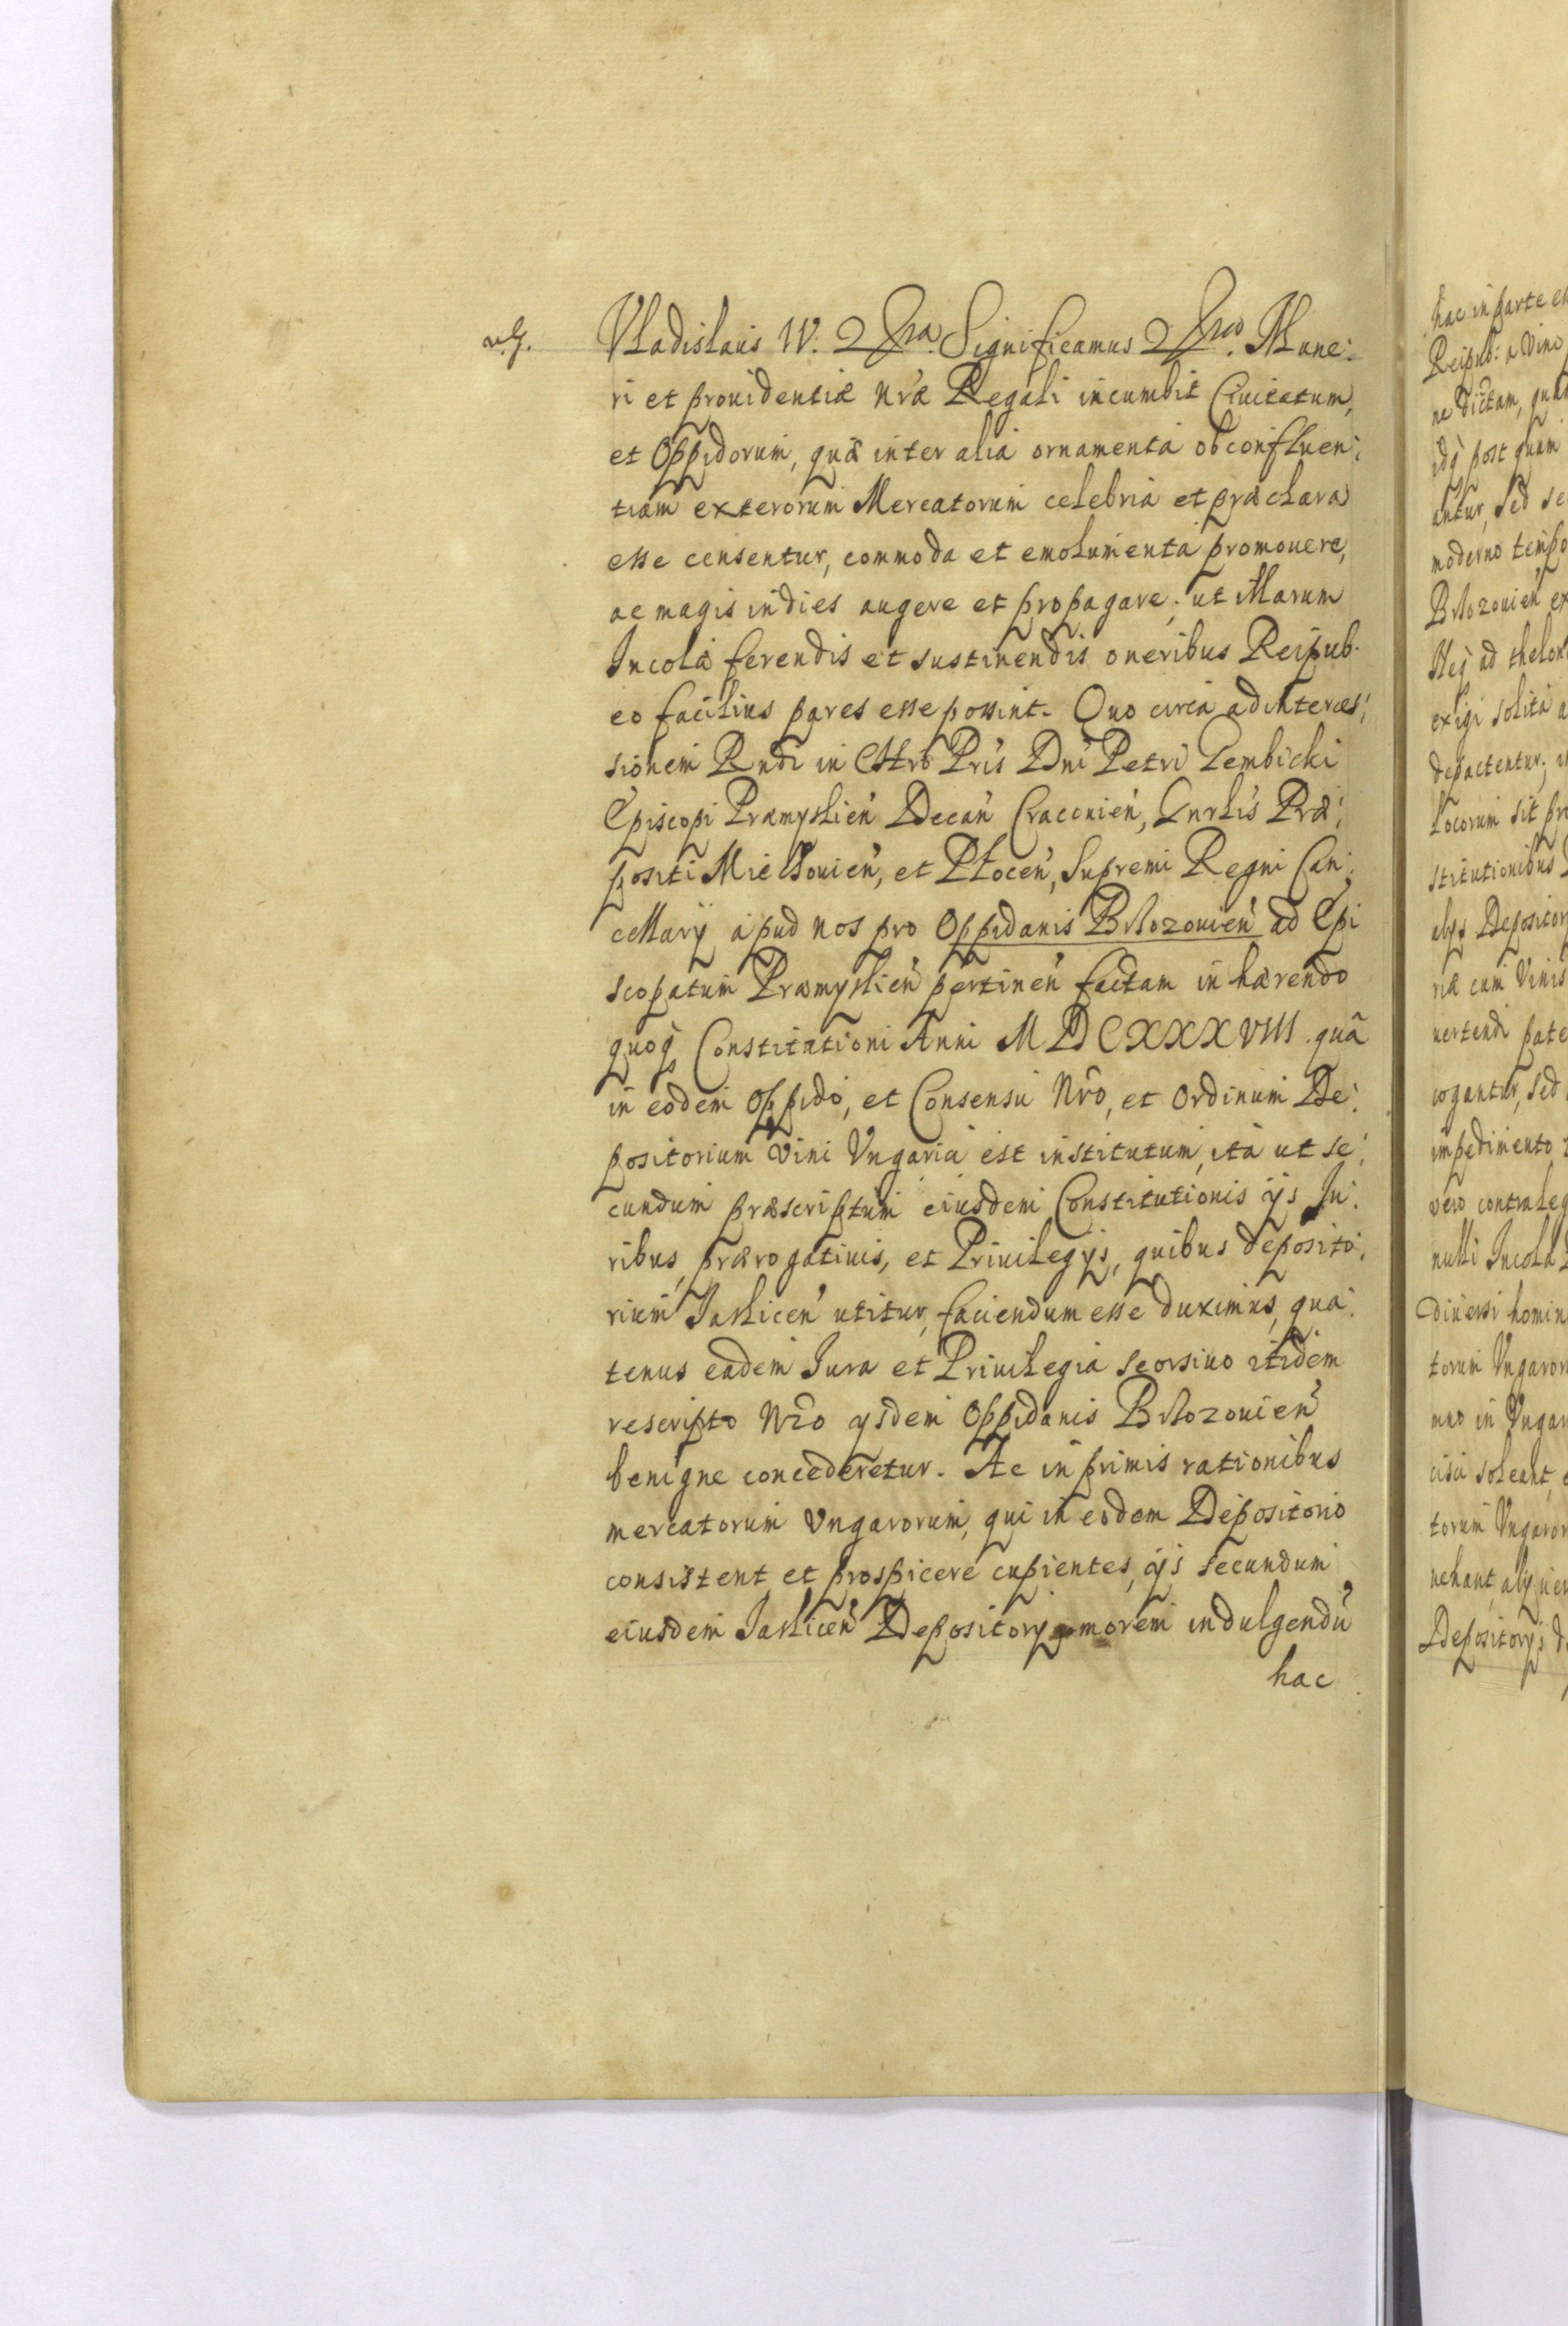 Vladislaus IV. &c Significamus &c Mune:
ri et prouidentiæ nræ Regali incumbit Ciuitatum,
et Oppidorum, quæ inter alia ornamenta ob confluen:
tiam exterorum Mercatorum celebria et præclara
esse censentur, commoda et emolumenta promouere,
ac magis indies augere et propagare; ut illarum
Incolæ ferendis et sustinendis oneribus Reipub.
eo facilius pares esse possint. Quo circa ad interces:
sionem Rndi in Chro Pris Dni Petri Gembicki
Episcopi Præmyslien Decan Cracouien, Gnrlis Præ:
positi Miechouien, et Plocen, Supremi Regni Can:
cellarÿ apud nos pro Oppidanis Brzozouien ad Epi
scopatum Præmyslien pertinen factam in hærendo
quoq Constitutioni Anni MDCXXXVIII. quâ
in eodem Oppido, et Consensu Nrô, et Ordinum De:
positorium Vini Vngaria est institutum, ita ut se:
cundum præscriptum eiusdem Constitutionis ijs Iu:
ribus, prærogatiuis, et Priuilegijs, quibus deposito:
rium Jaslicen utitur, faciendum esse duximus, qua:
tenus eadem Jura et Priuilegia seorsiuo itidem
rescripto Nrô ijsdem Oppidanis Brzozouien
benigne concederetur. Ac in primis rationibus
mercatorum Vngarorum, qui in eodem Depositorio
consistent et prospicere cupientes, ijs secundum
eiusdem Jaslicen Depositorij morem indulgendũ
hac
hac in parte
Reipub: a Vino
ne dictam,
idq post quam
untur, sed se
moderno
Brzozouien
Neq ad
exigi solita
depactentur;
Locorum sit
stitutionibus
alijs
riæ cum Vinis
uertendi
cogantur, sed
impedimento
vero contra
nulli Incolæ
diuersi
torum
in
soleant,
torum
uehant,
Depositorijs